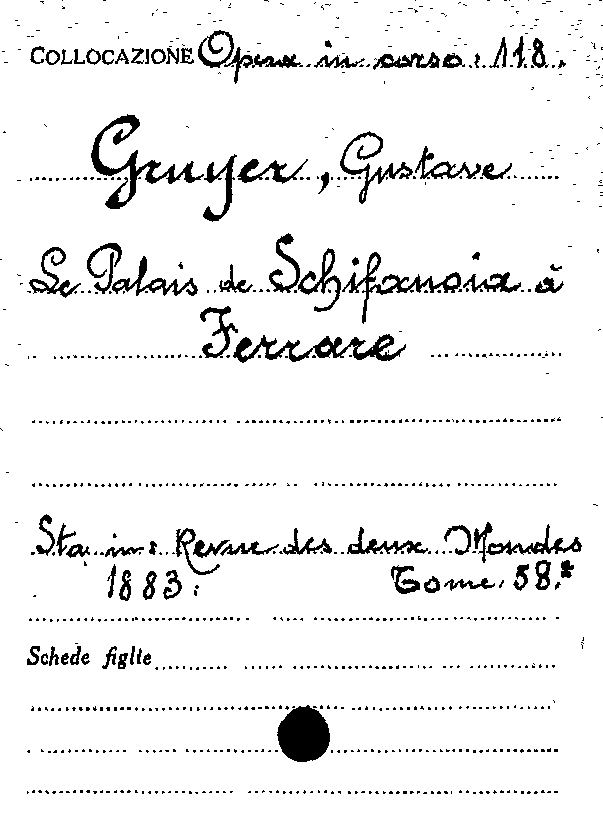 COLLOCAZIONE Opera in corso: 118.
Gruyer, Gustave
Le Palais de Schifanoia à
Ferrare
Sta in: Revue des deux Mondes
1883: Tome 58.°
Schede figlie